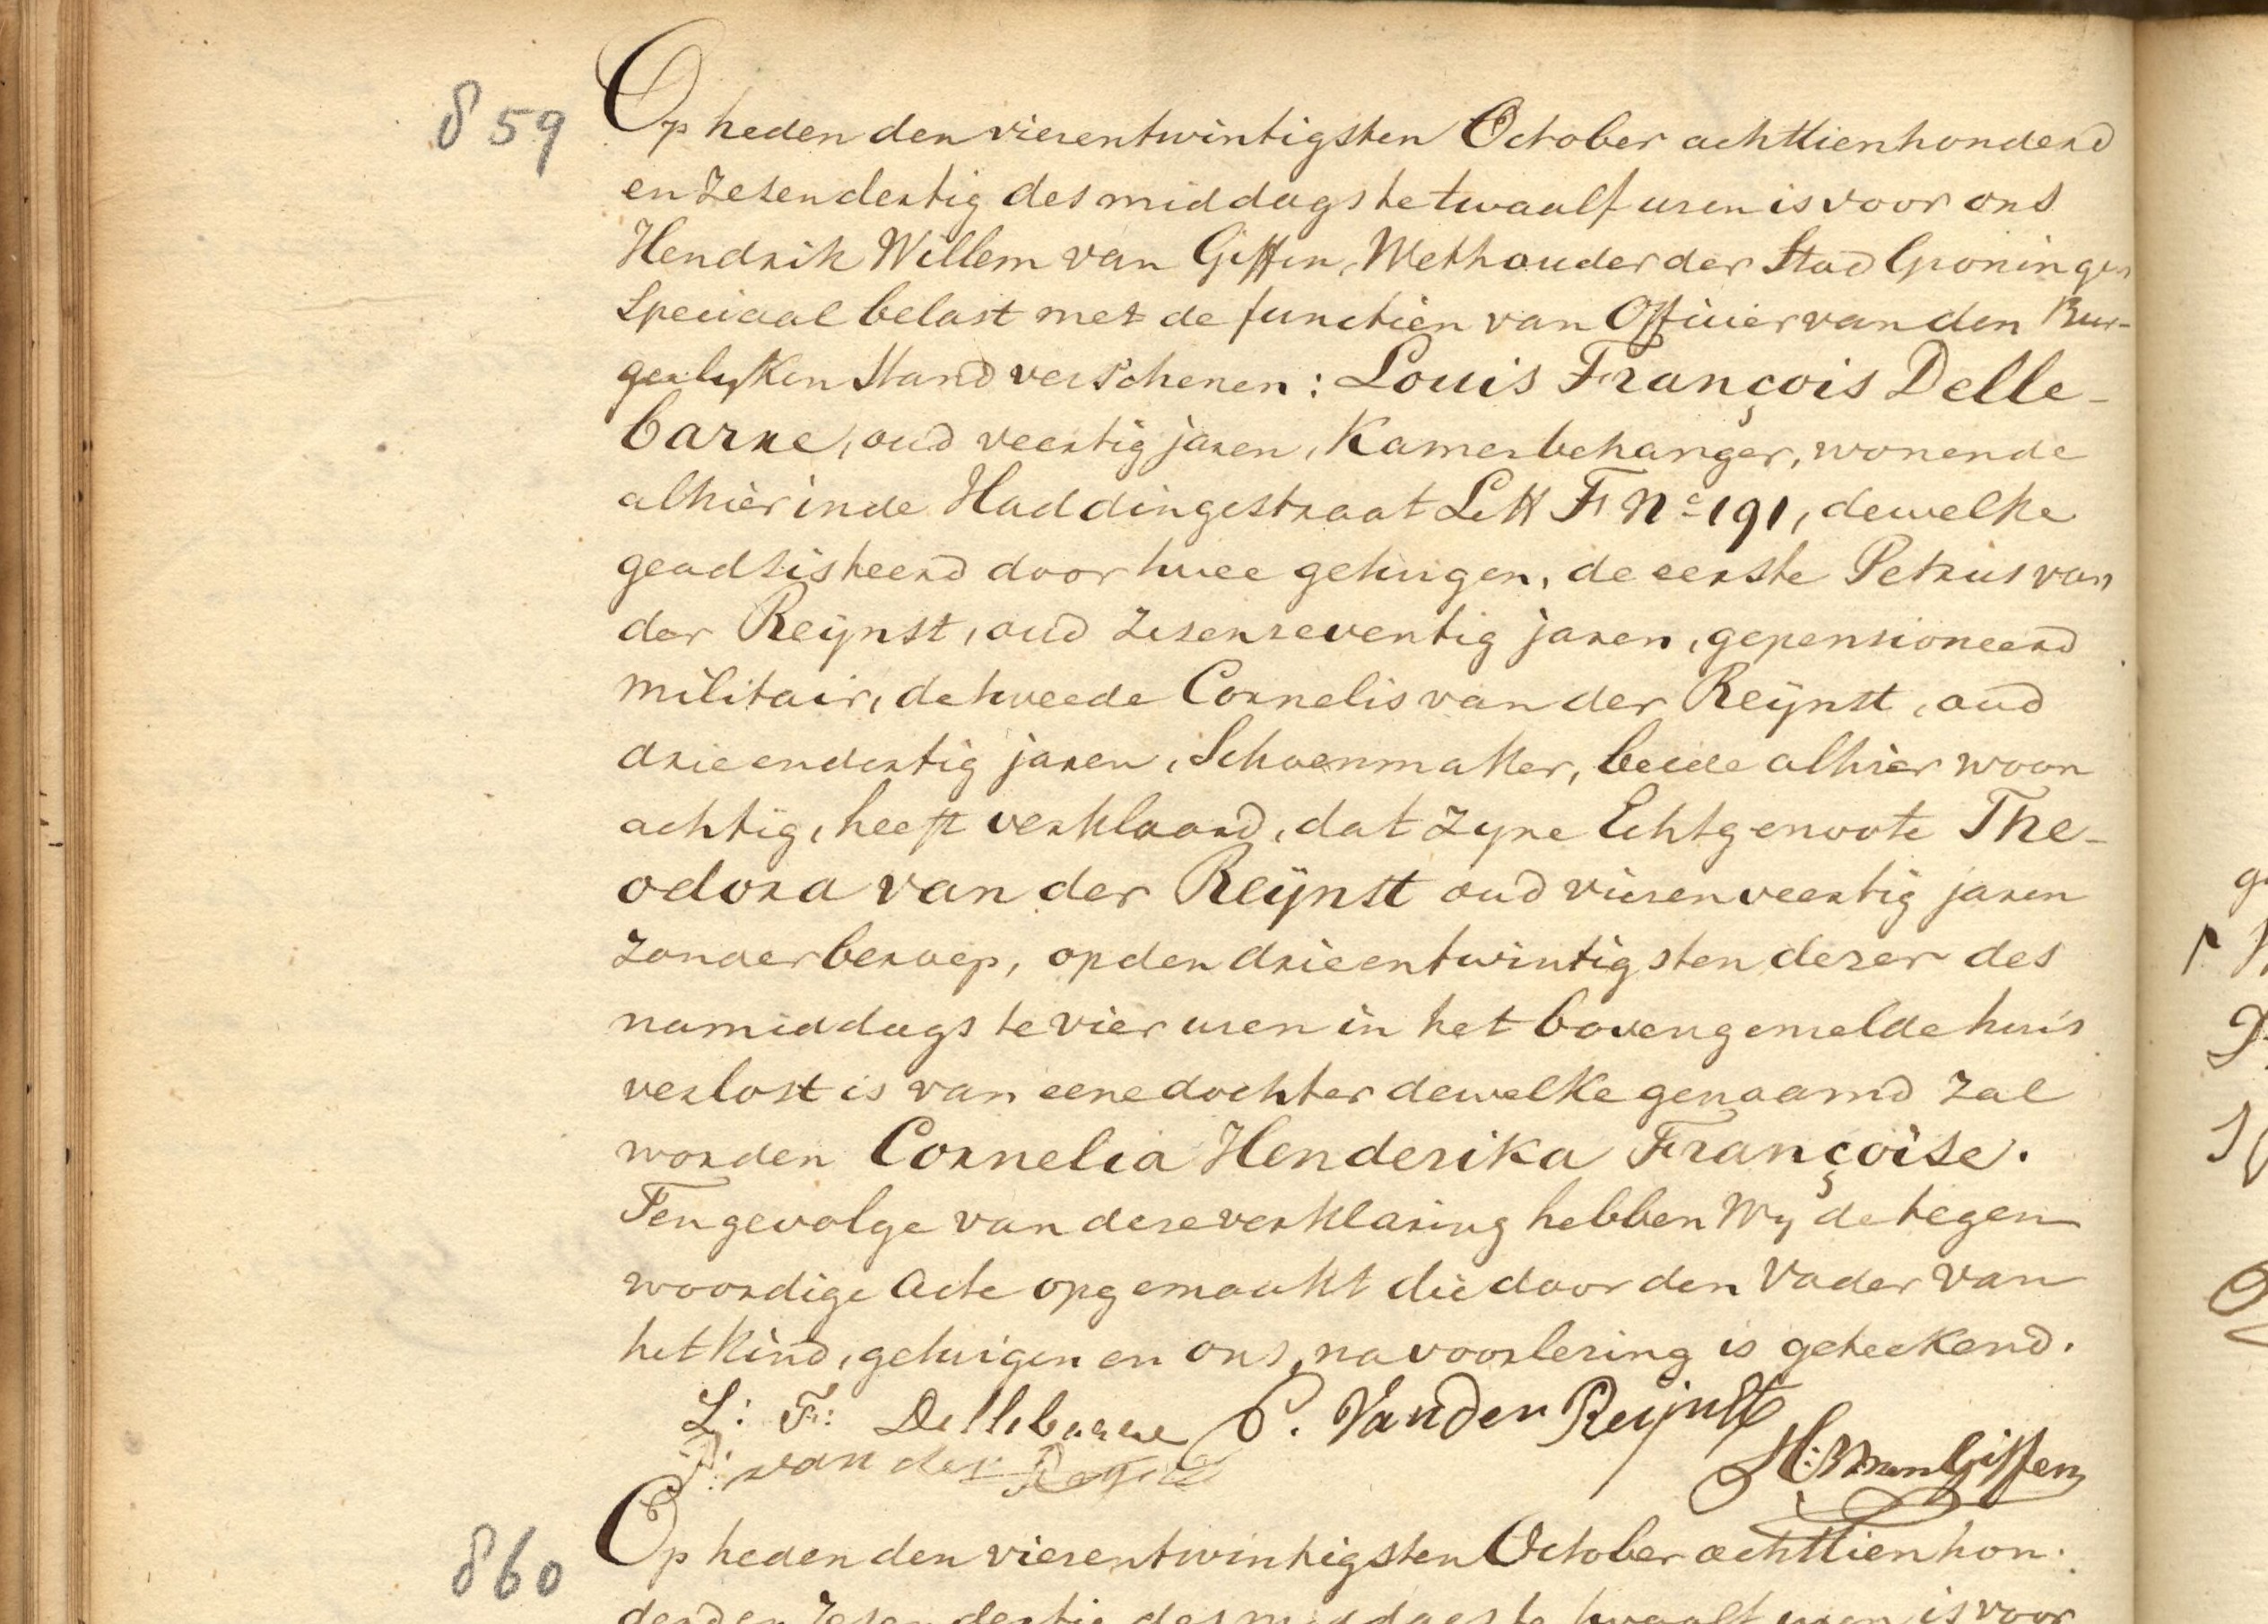 859
Op heden den vierentwintigsten October achttienhonderd
en zesendertig des middags te twaalf uren is voor ons
Hendrik Willem van Giffen, Wethouder der Stad Groningen
Speciaal belast met de functien van Officier van den Bur-
gerlyken Stand verschenen: Louis François Delle-
barre, oud veertig jaren, Kamerbehanger, wonende
alhier in de Haddingestraat Lett F No 191, dewelke
geadsisteerd door twee getuigen, de eerste Petrus van
der Reijnst, oud zesenzeventig jaren, gepensioneerd
militair, de tweede Cornelis van der Reijnst, oud
drieendertig jaren, Schoenmaker, beide alhier woon
achtig, heeft verklaard, dat zyne Echtgenoote The-
odora van der Reijnst oud vierenveertig jaren
zonder beroep, op den drieentwintigsten dezer des
namiddags te vier uren in het bovengemelde huis
verlost is van eene dochter dewelke genaamd zal
worden Cornelia Henderika Françoise.
Ten gevolge van deze verklaring hebben Wy de tegen
woordige Acte opgemaakt die door den Vader van
het Kind, getuigen en ons, na voorlezing is geteekend.
L: F: Dellebarre P. Van der Reijnst
van der
H: W van Giffen
860
Op heden den vierentwintigsten October achttienhon.
derd en zesendertig des middags te twaalf uren is voor